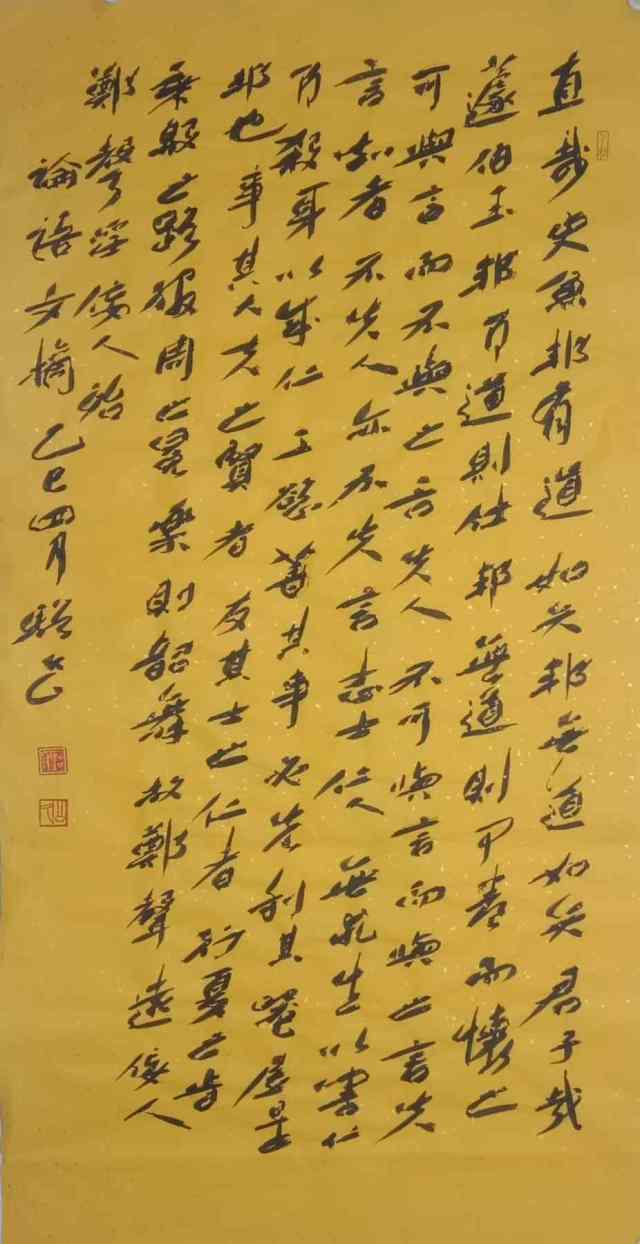 直哉史魚邦有道如矢邦無道如矢君子哉
蘧伯玉邦有道則仕邦無道則可卷而懷之
可與言而不與之言失人不可與言而與之言失
言知者不失人亦不失言志士仁人無求生以害仁
有殺身以成仁工欲善其事必先利其器居是
邦也事其大夫之賢者友其士之仁者行夏之時
乘殷之路服周之冕樂則韶舞放鄭聲遠佞人
鄭聲淫佞人殆
論語文摘乙巳四月